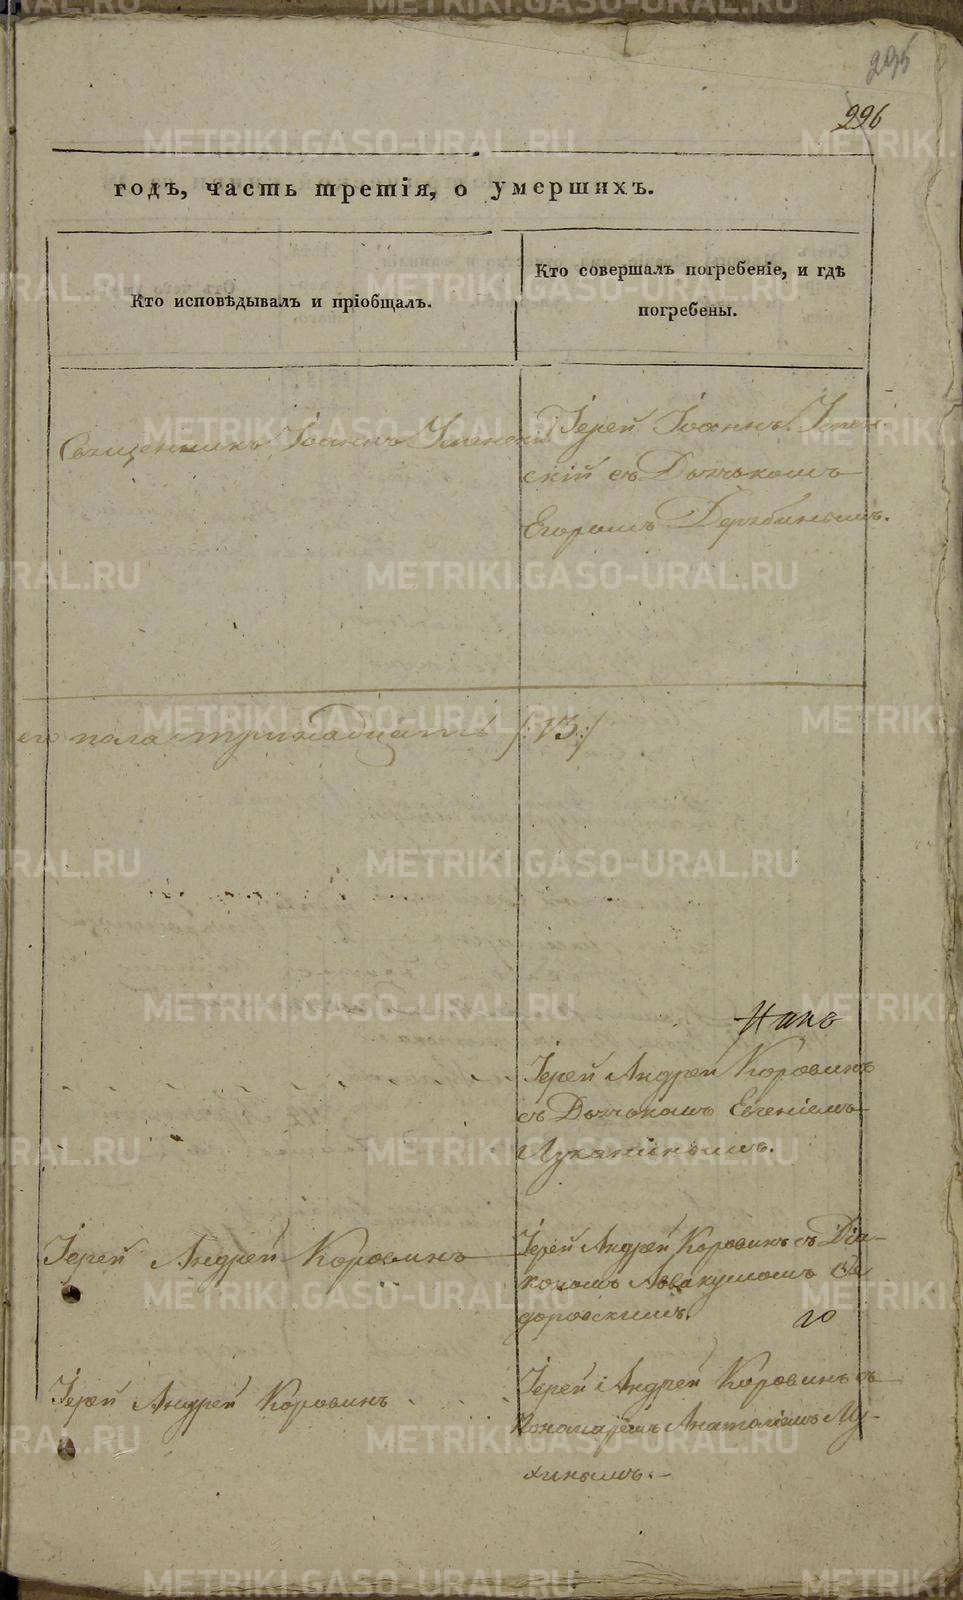 295
226
годъ, часть третія, о умершихъ.
Кто исповѣдывалъ и пріобщалъ.
Кто совершалъ погребеніе, и гдѣ
погребены.
Священникъ Іоаннъ Успенскій
Іерей Іоаннъ Успен-
скій съ Дьячкомъ
Егоромъ Дерябинымъ.
пола тринадцать /:13:/
Іерей Андрей Коровинъ
съ Дьячкомъ Евгеніемъ
Луканинымъ.
Іерей Андрей Коровинъ
Іерей Андрей Коровинъ съ Діа-
кономъ Аввакумомъ
доровскимъ.
Іерей Андрей Коровинъ
Іерей Андрей Коровинъ съ
Пономаремъ Анатоліемъ Лу-
хинымъ.
METRIKI.GASO-URAL.RU